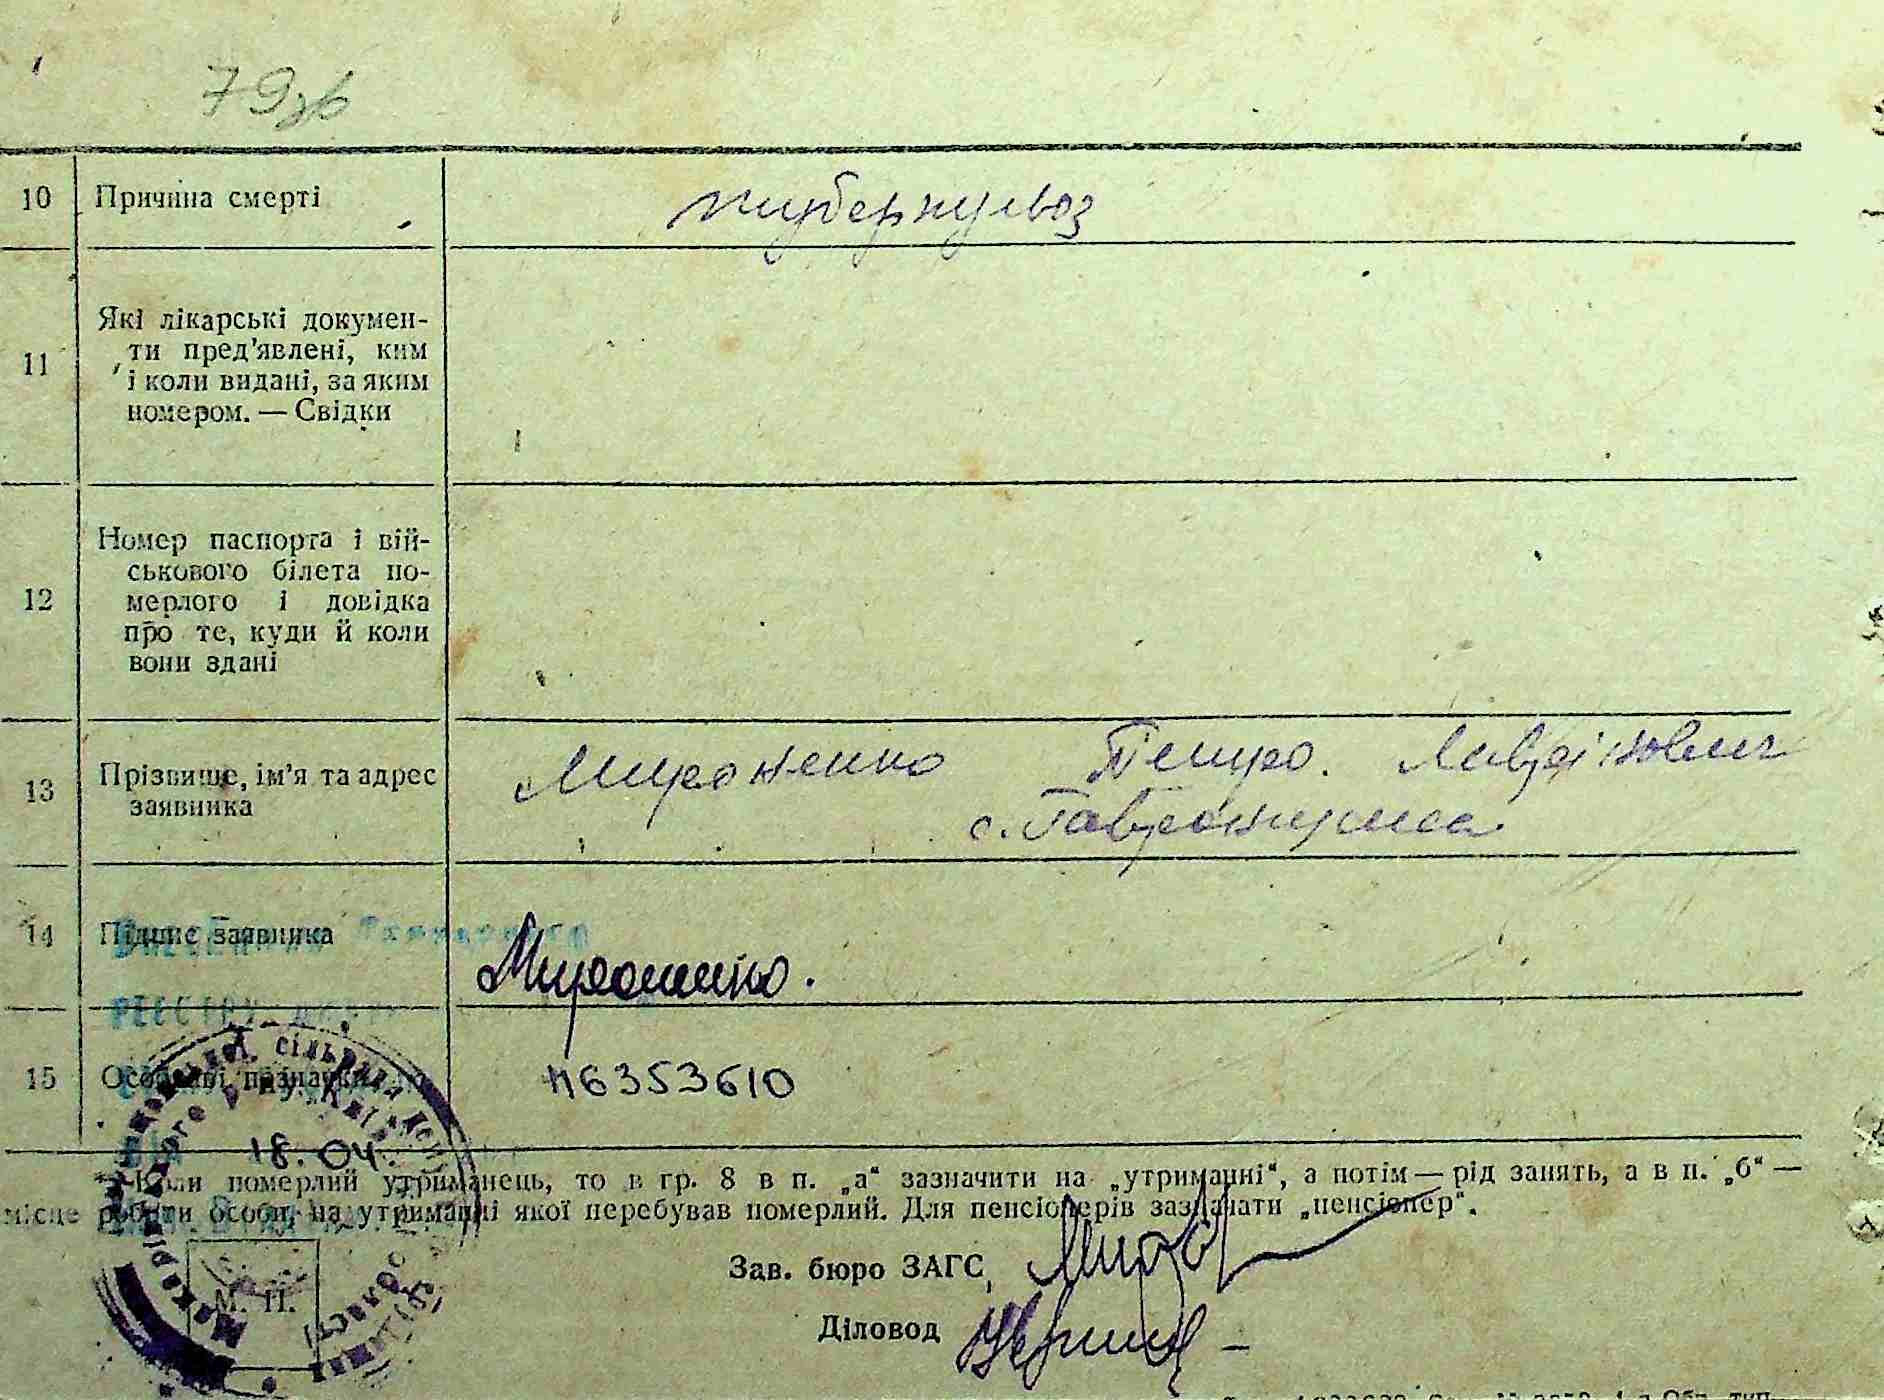 79зв
10 Причина смерті туберкульоз
11 Які лікарські докумен-
ти пред'явлені, ким
і коли видані, за яким
номером. — Свідки
12 Номер паспорта і вій-
ськового білета по-
мерлого і довідка
про те, куди й коли
вони здані
13 Прізвище, ім'я та адрес Мироненко Петро. Лаврінович
заявника с. Гавронщина
14 Підпис заявника Мироненко.
15 Особливі позначки 46353610
18.04.
* Коли померлий утриманець, то в гр. 8 в п. „а“ зазначити на „утриманні“, а потім — рід занять, а в п. „б“ —
місце роботи особи, на утриманні якої перебував померлий. Для пенсіонерів зазначати „пенсіонер“.
Зав. бюро ЗАГС
Діловод
М. П.